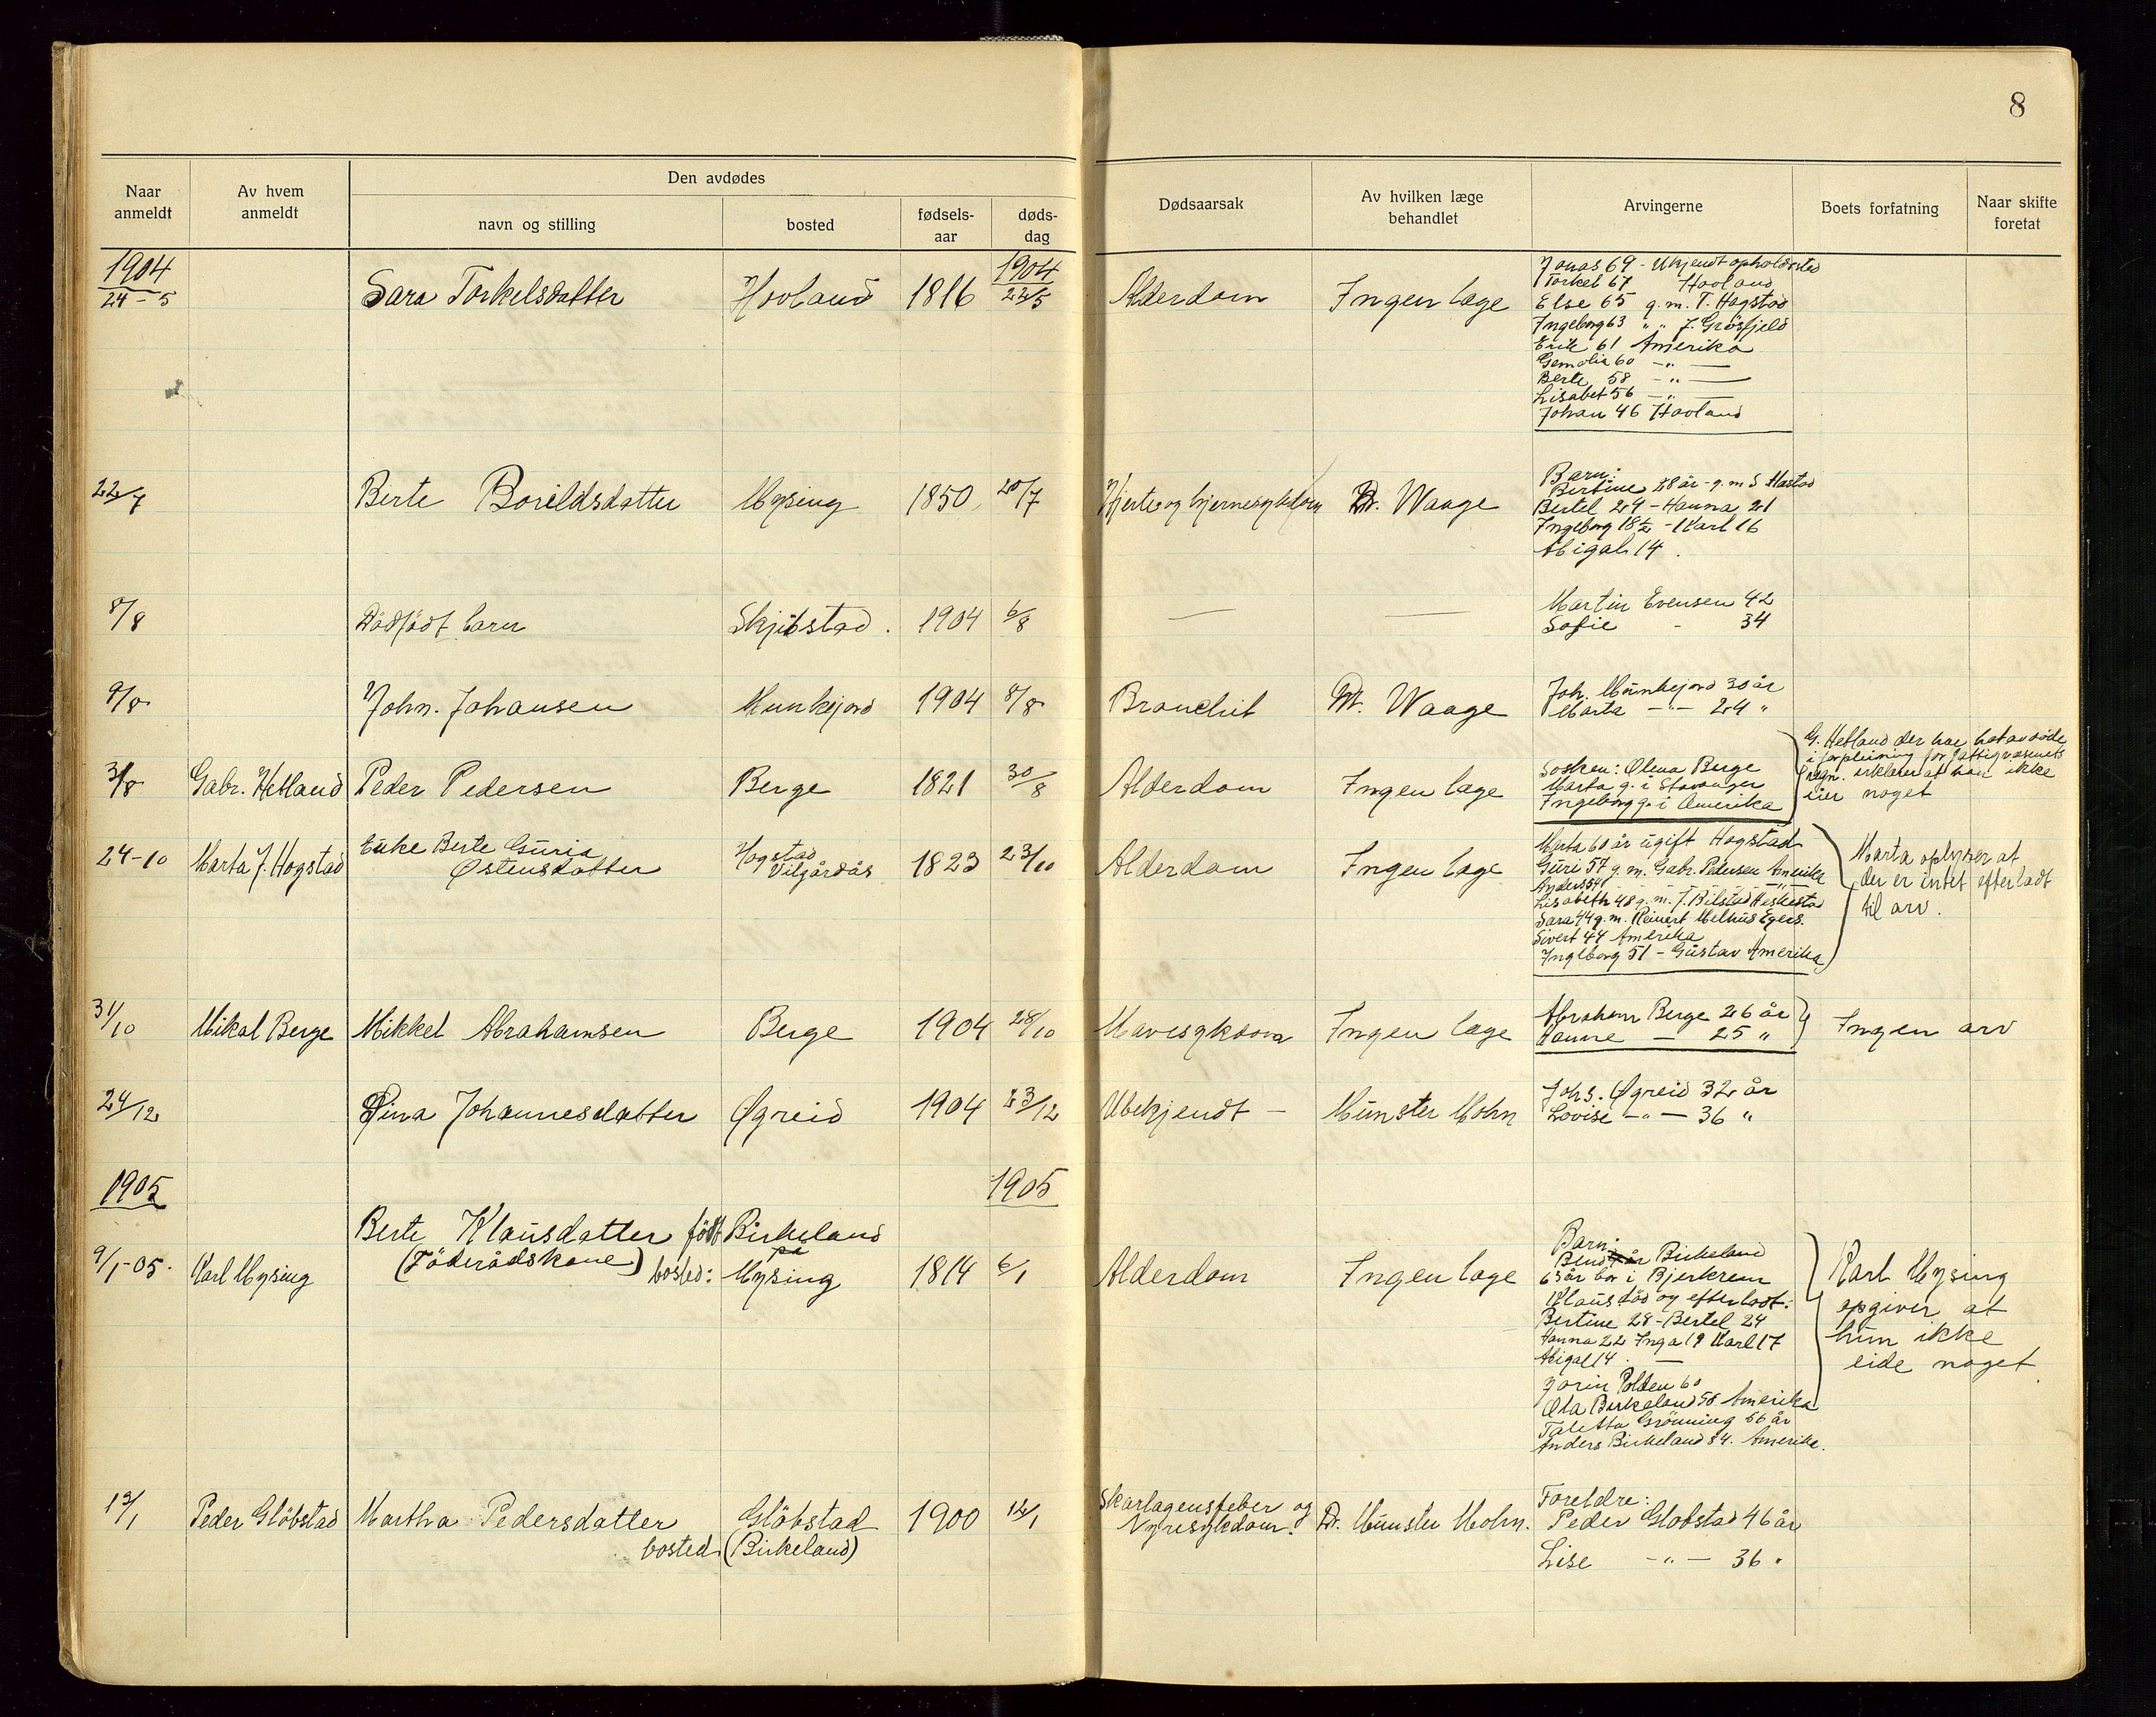 8
Naar anmeldt
Av hvem anmeldt
Den avdødes
navn og stilling
bosted
fødsels-aar
døds-dag
Dødsaarsak
Av hvilken læge behandlet
Arvingerne
Boets forfatning
Naar skifte foretat
1904
24-5
Sara Torkelsdatter
Hovland
1816
1904
22/5
Alderdom
Ingen læge
Jonas 69 - Ukjendt opholdssted
Torkel 67 Hovland
Else 65 g.m. T. Hogstad
Ingeborg 63 " " J. Grøsfjeld
Erik 61 Amerika
60 -"-
Berte 58 -"-
Lisabet 56 -"-
Johan 46 Hovland
22/7
Berte Borildsdatter
Mysing
1850
20/7
Hjerte og hjernesykdom
Dr. Waage
Barn:
Bertine 28 år - g.m S Mastad
Bertel 24 - Hanna 21
Ingeborg 18½ - Karl 16
Abigal 14.
8/8
Dødfødt barn
Skjibstad.
1904
6/8
—
—
Martin Evensen 42
Sofie - 34
9/8
John. Johansen
Munkejord
1904
8/8
Bronchit
Dr. Waage
Joh. Munkejord 30 år
Marta -"- 24 "
31/8
Gabr. Hetland
Peder Pedersen
Berge
1821
30/8
Alderdom
Ingen læge
Sosken: Olena Berge
Marta g. i Stavanger
Ingeborg g. i Amerika
G. Hetland der har hat avdøde
i forpleining for fattigvæsenets
regn. erklærer at han ikke
eier noget
24-10
Marta J. Hogstad
Enke Berte Guria
Østensdatter
Hogstad
Vilgårdås
1823
23/10
Alderdom
Ingen læge
Marta 60 år ugift Hogstad
Guri 57 g.m. Gabr. Pedersen Amerika
Anders 54 -"-
Lisabeth 48 g.m. J. Bilstad Heskestad
Sara 44 g.m. Reinert Melhus Egers.
Sivert 44 Amerika
Ingeborg 51 - Gustav Amerika
Marta oplyser at
der er intet efterladt
til arv.
31/10
Mikal Berge
Mikkel Abrahamsen
Berge
1904
28/10
Mavesykdom
Ingen læge
Abraham Berge 26 år
Hanne — 25 "
Ingen arv
24/12
Dina Johannesdatter
Øgreid
1904
23/12
Ubekjendt -
Münster Mohn
Johs. Øgreid 32 år
Lovise -"- 36 "
1905
1905
9/1-05.
Karl Mysing
Berte Klausdatter født
(Föderådskone) bosted:
Birkeland
på
Mysing
1814
6/1
Alderdom
Ingen læge
Barn:
Bend Birkeland
65 år bor i Bjerkrem
Klaus död og efterladt:
Bertine 28 - Bertel 24
Hanna 22 Inga 19 Karl 17
Abigal 14. —
Jorin Polden 60
Ola Birkeland 58 Amerika
Taletta Grönning 56 år
Anders Birkeland 54. Amerika.
Karl Mysing
opgiver at
hun ikke
eide noget
13/1
Peder Glöbstad
Martha Pedersdatter
bosted
Glöbstad
(Birkeland)
1900
12/1
Skarlagensfeber og
Nyresykdom.
Dr. Münster Mohn.
Foreldre:
Peder Glöbstad 46 år
Lise -"- 36 "